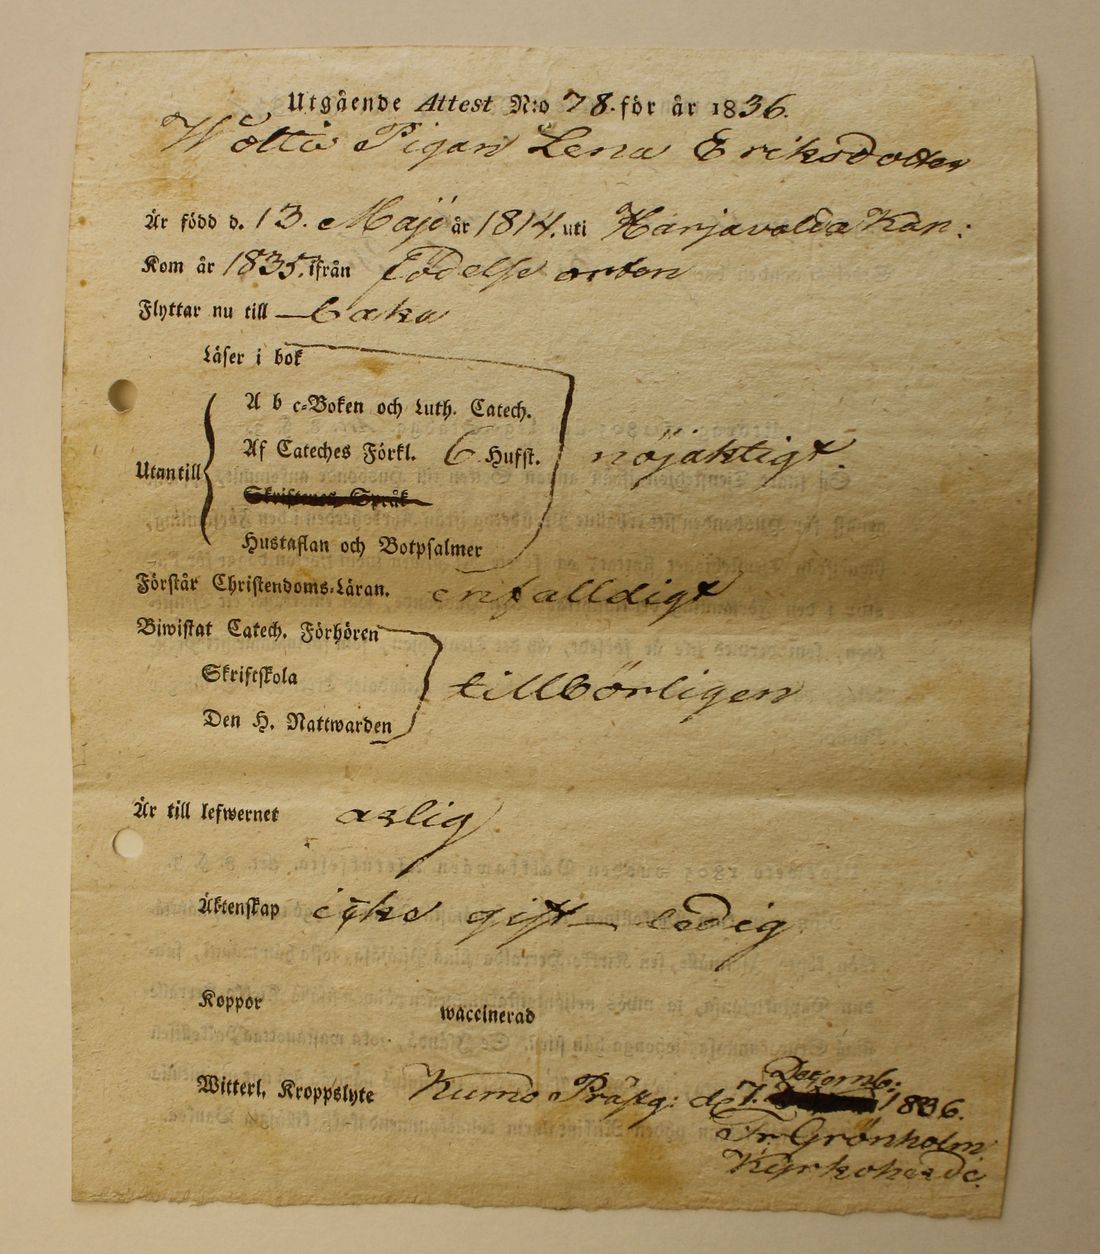 Utgående Attest N:o 78. för år 1836.
Pigan Lena Eriksdotter
Är född d. 13. Maji år 1814. uti Harjavalda Kap:
Kom år 1835. ifrån födelse orten
Flyttar nu till — baka
Läser i bok
A b c-Boken och Luth. Catech.
Af Cateches Förkl. 6 Hufst. nöjaktigt
Utantill
Skriftenes Språk
Hustaflan och Botpsalmer
Förstår Christendoms-Läran. enfalldigt
Biwistat Catech. Förhören
Skriftskola tillbörligen
Den H. Nattwarden
Är till lefwernet ärlig
Äktenskap icke gift — ledig
Koppor waccinerad
Witterl. Kroppslyte Kumo Prästg: d. 7. Decemb: 1836.
Fr. Grönholm
Kyrkoherde.